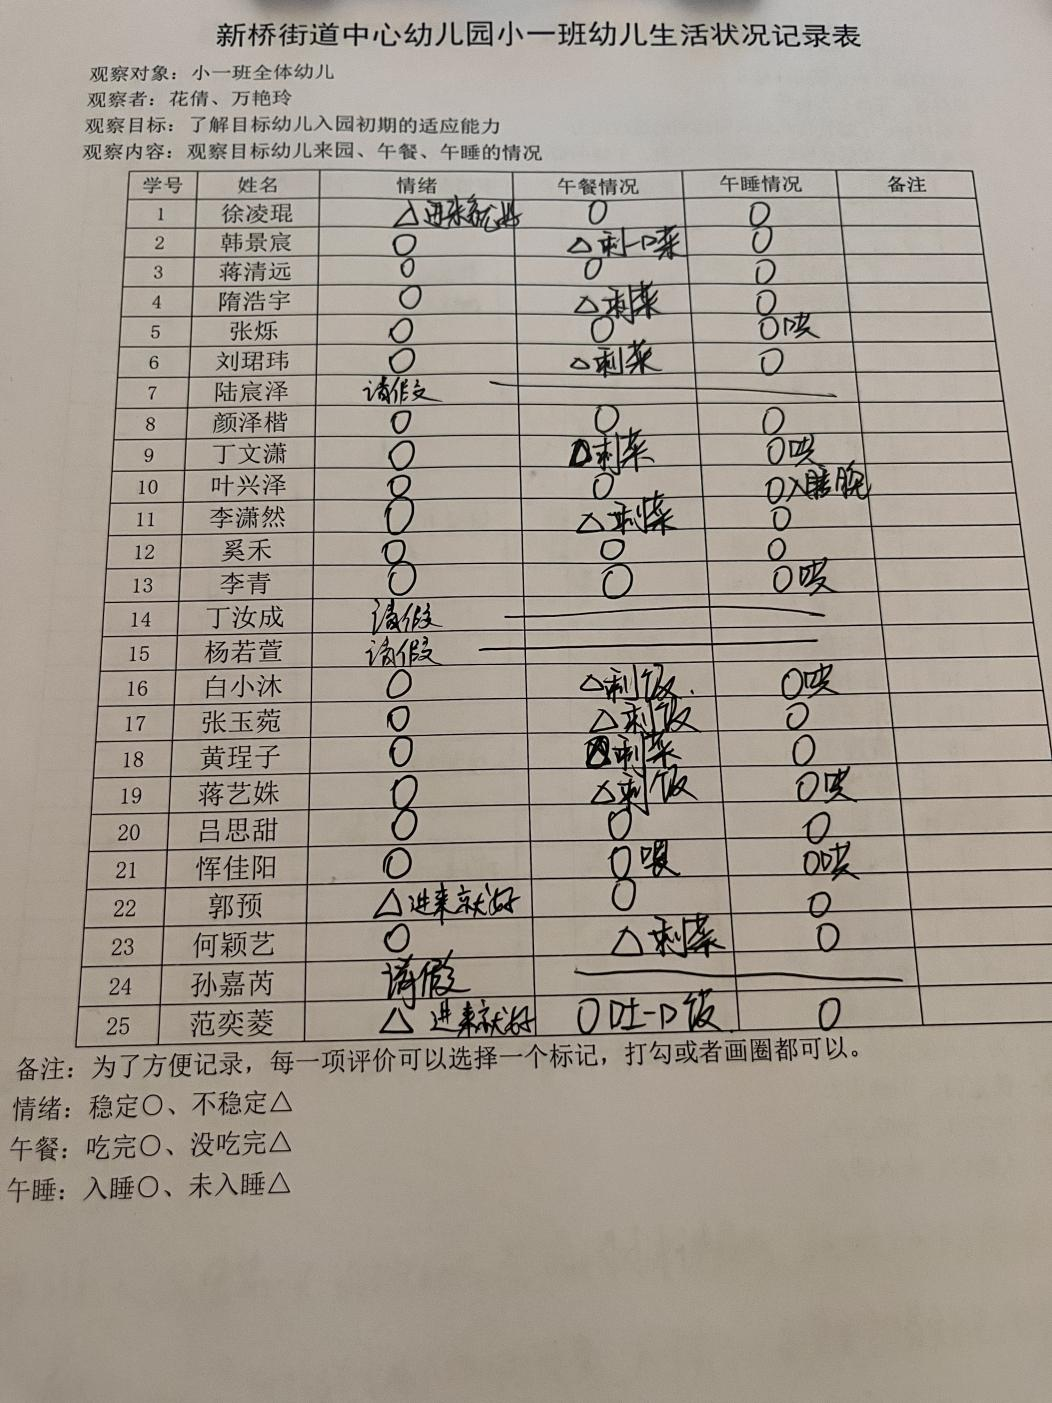 新桥街道中心幼儿园小一班幼儿生活状况记录表
观察对象：小一班全体幼儿
观察者：花倩、万艳玲
观察目标：了解目标幼儿入园初期的适应能力
观察内容：观察目标幼儿来园、午餐、午睡的情况
学号 姓名 情绪 午餐情况 午睡情况 备注
1 徐凌琨 △进来就好 〇 〇
2 韩景宸 〇 △剩一口菜 〇
3 蒋清远 〇 〇 〇
4 隋浩宇 〇 △剩菜 〇
5 张烁 〇 〇 〇咳
6 刘珺玮 〇 △剩菜 〇
7 陆宸泽 请假
8 颜泽楷 〇 〇 〇
9 丁文潇 〇 △剩菜 〇咳
10 叶兴泽 〇 〇 〇入睡晚
11 李潇然 〇 △剩菜 〇
12 奚禾 〇 〇 〇
13 李青 〇 〇 〇咳
14 丁汝成 请假
15 杨若萱 请假
16 白小沐 〇 △剩饭 〇咳
17 张玉菀 〇 △剩饭 〇
18 黄珵子 〇 △剩菜 〇
19 蒋艺姝 〇 △剩饭 〇咳
20 吕思甜 〇 〇 〇
21 恽佳阳 〇 〇喂 〇咳
22 郭预 △进来就好 〇 〇
23 何颖艺 〇 △剩菜 〇
24 孙嘉芮 请假
25 范奕菱 △ 进来就好 〇吐一口饭 〇
备注：为了方便记录，每一项评价可以选择一个标记，打勾或者画圈都可以。
情绪：稳定〇、不稳定△
午餐：吃完〇、没吃完△
午睡：入睡〇、未入睡△